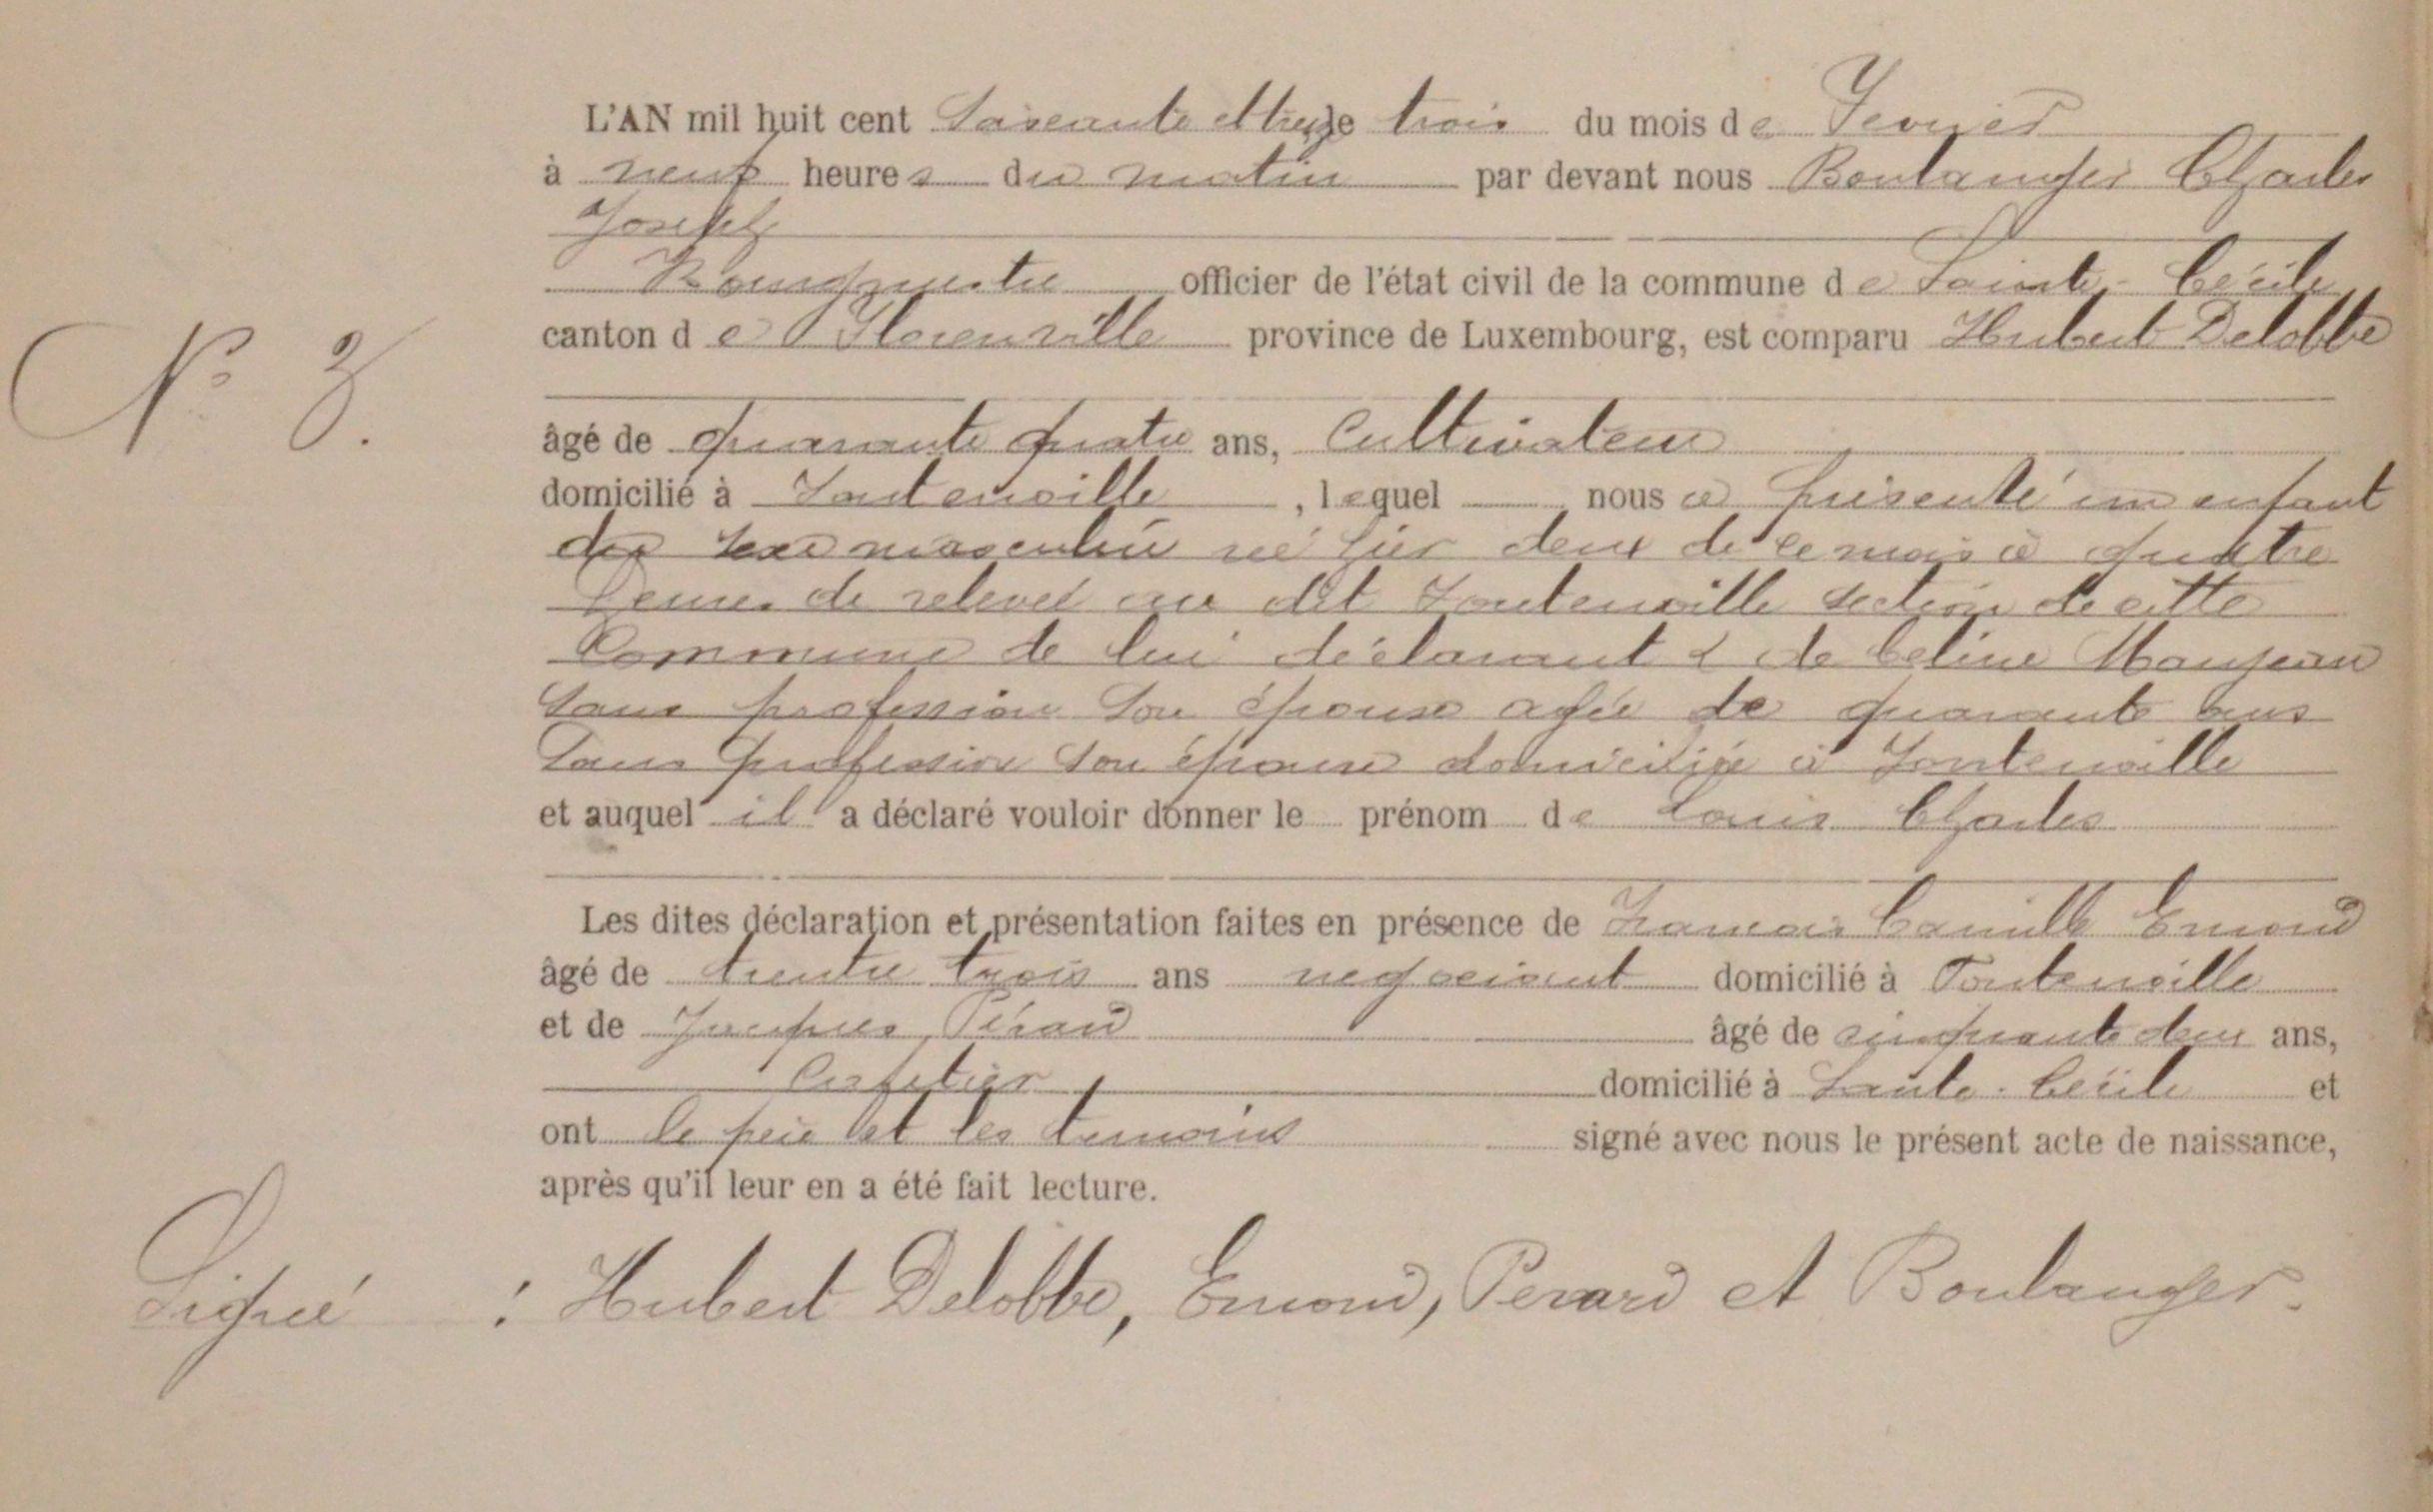 L'AN mil huit cent Soixante et treize trois du mois de Fevrier
à neuf heures du matin par devant nous Boulanger Charles
Joseph
Bourgmestre officier de l'état civil de la commune de Sainte-Cécile
N° 3.
canton de Florenville province de Luxembourg, est comparu Hubert Delobbe
âgé de quarante quatre ans, Cultivateur
domicilié à Fontenoille, lequel nous a présenté un enfant
du sexe masculin né hier deux de ce mois à quatre
heures de relevée au dit Fontenoille section de cette
Commune de lui déclarant & de Celine Manjean
sans profession son épouse agée de quarante ans
sans profession son épouse domiciliée à Fontenoille
et auquel il a déclaré vouloir donner le prénom de Louis Charles
Les dites déclaration et présentation faites en présence de Francois Camille Emond
âgé de trente trois ans negociant domicilié à Fontenoille
et de Jacques Pérard âgé de cinquante deux ans,
Cafetier domicilié à Sainte-Cécile et
ont le père et les temoins signé avec nous le présent acte de naissance,
après qu'il leur en a été fait lecture.
Signé : Hubert Delobbe, Emond, Perard et Boulanger.